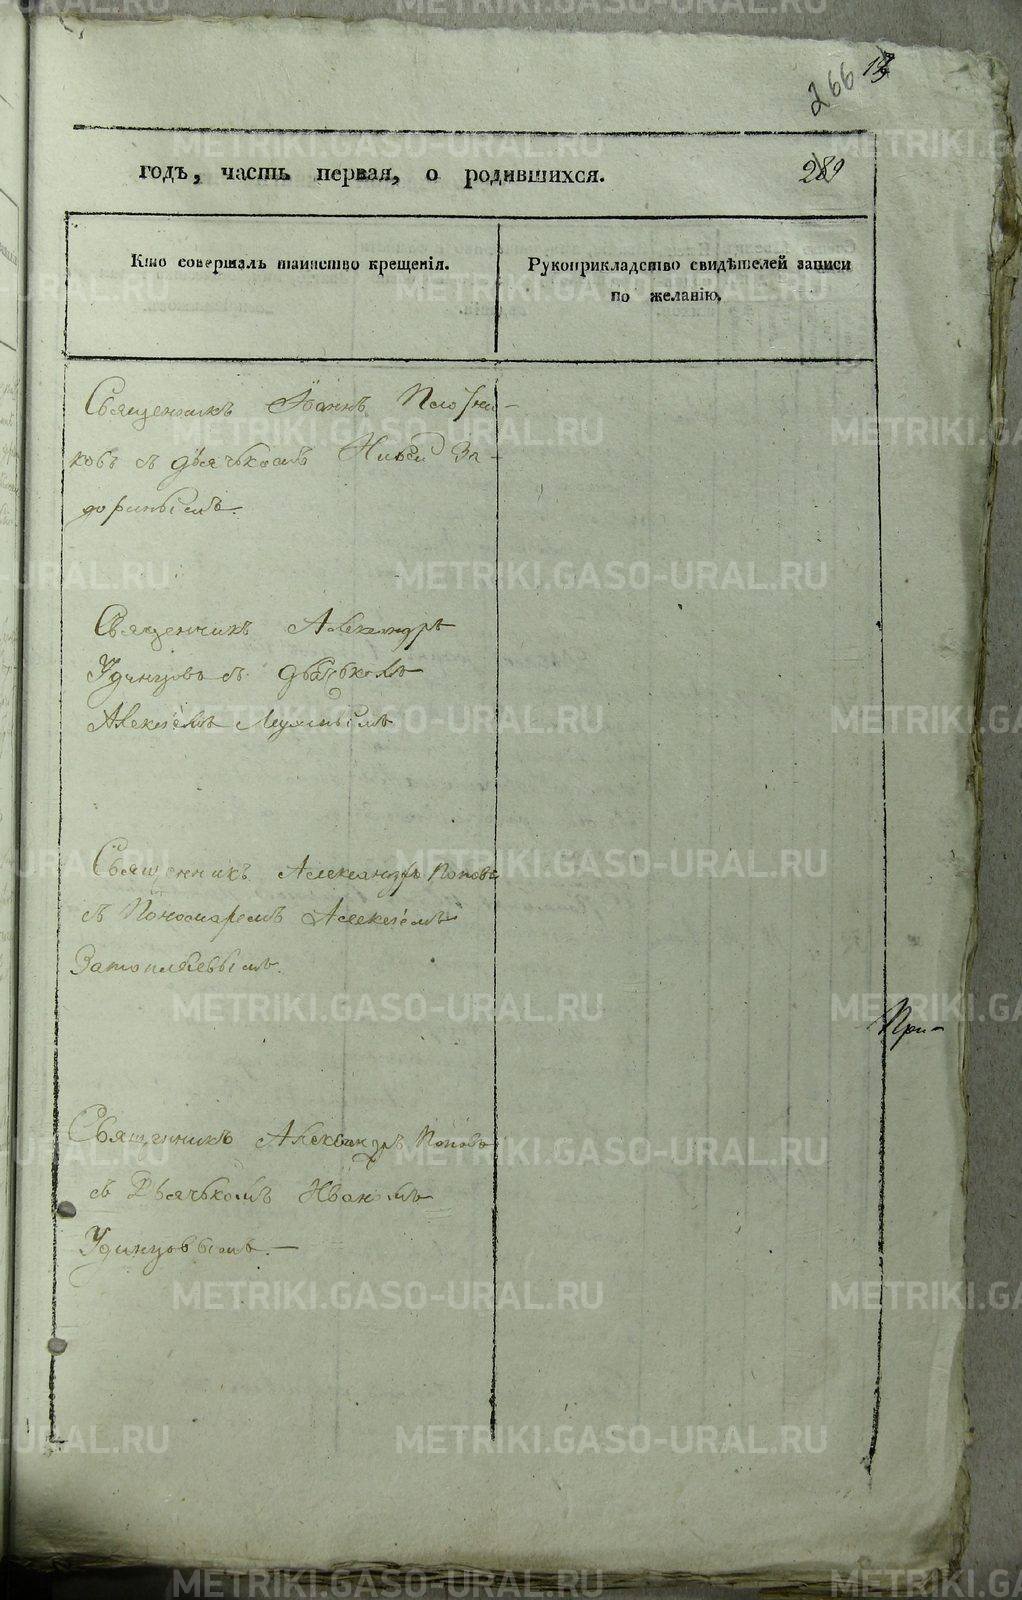 266
годъ, часть первая, о родившихся.
289
Кто совершалъ таинство крещенія.
Рукоприкладство свидѣтелей записи
по желанію.
Священникъ Іоаннъ Плотни-
ковъ съ дьячькомъ За-
доринымъ.
Священникъ Александръ
Удинцовъ съ дьячькомъ
Алексѣемъ
Священникъ Александръ Поповъ
съ Пономаремъ Алексѣемъ
Затопляевымъ.
При-
Священникъ Александръ Поповъ
съ Дьячькомъ Иваномъ
Удинцовымъ.—
METRIKI.GASO-URAL.RU